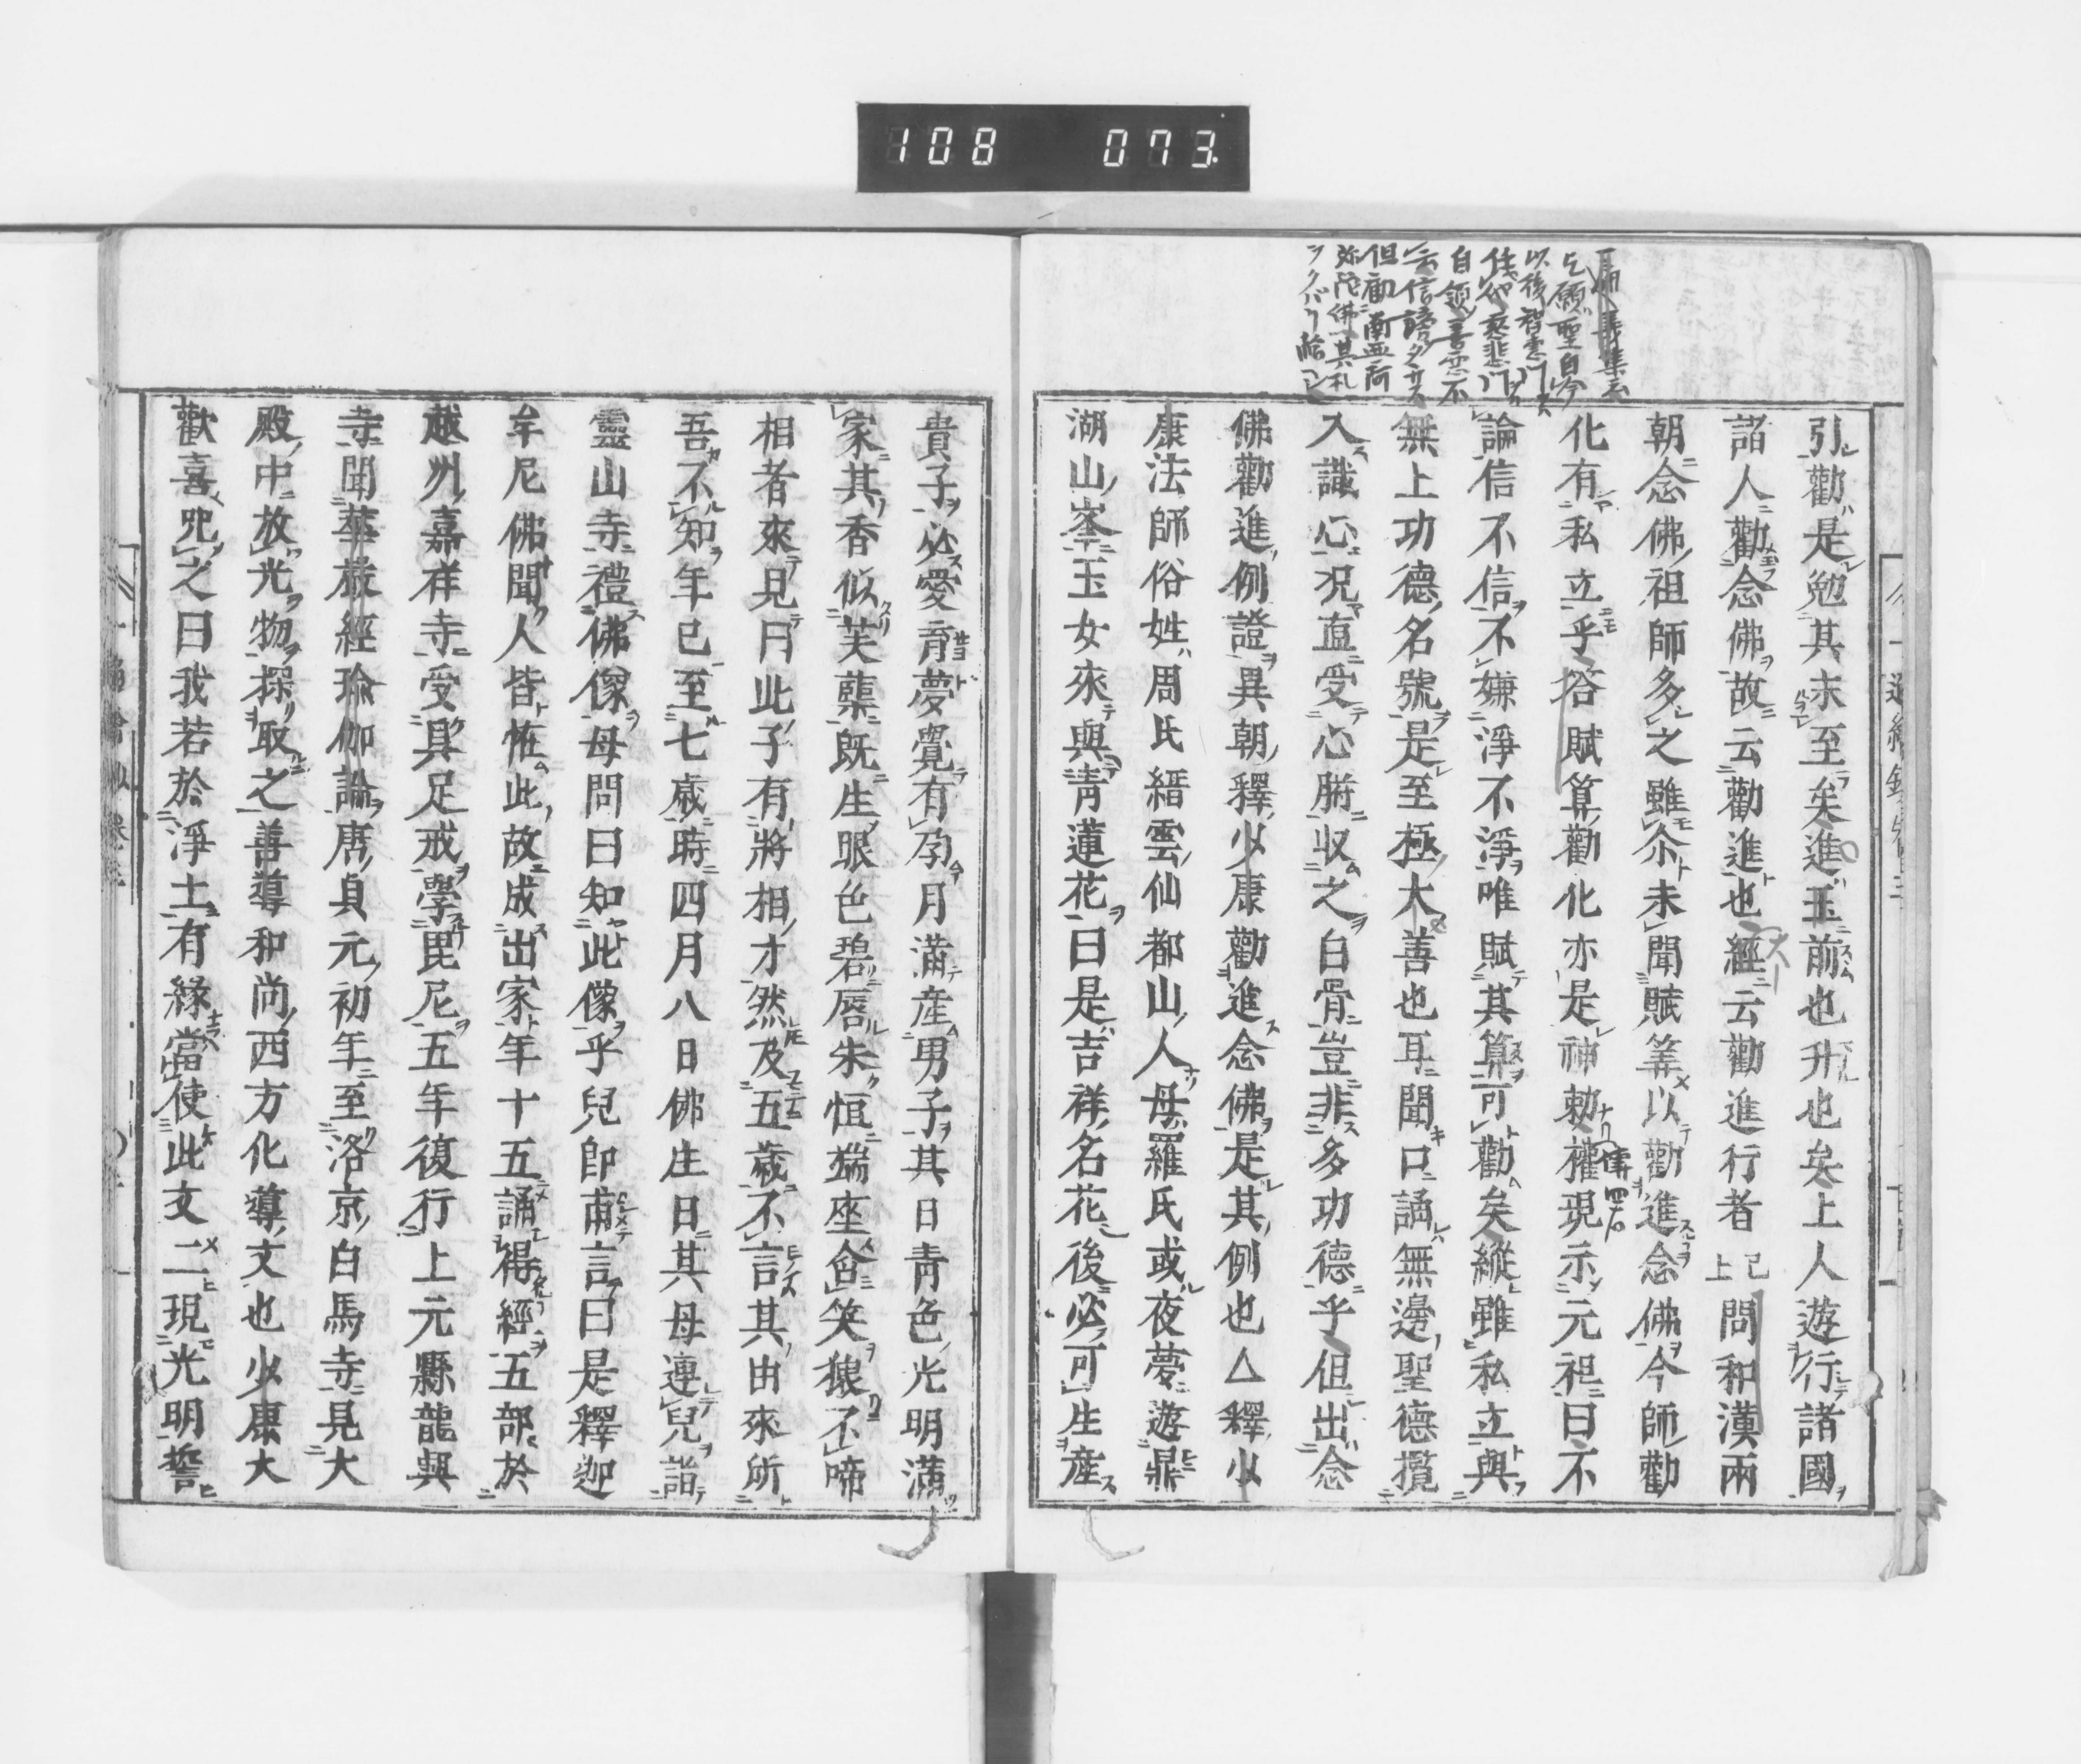 108 073
引勸是勉其未至矣進玉前也升也矣上人遊行諸國
諸人勸念佛故云勸進也經云勸進行者已上問和漢兩
朝念佛祖師多之雖尒未聞賦筭以勸進念佛今師勸
化有私立乎答賦算勸化亦是神勅權現示元祖曰不
論信不信不嫌淨不淨唯賦其算可勸矣縱雖私立與
無上功德名號是至極大善也耳聞口誦無邊聖德攬
入識心况直受心腑収之白骨豈非多功德乎但出念
佛勸進例證異朝釋少康勸進念佛是其例也△釋少
康法師俗姓周氏縉雲仙都山人母羅氏或夜夢遊鼎
湖山峯玉女來與青蓮花曰是吉祥名花後必可生産
貴子必愛育夢覺有孕月滿産男子其日青色光明滿
家其香似芙蕖既生眼色碧唇朱恒端座含笑猿不啼
相者來見曰此子有將相才然及五歲不言其由來所
吾不知年已至七歲時四月八日佛生日其母連兒詣
靈山寺禮佛像母問曰知此像乎兒即甫言曰是釋迦
牟尼佛聞人皆恠此故成出家年十五誦得經五部於
越州嘉祥寺受具足戒學毘尼五年復行上元縣龍興
寺聞華嚴經瑜伽論唐貞元初年至洛京白馬寺見大
殿中放光物探取之善導和尚西方化導文也少康大
歡喜咒之曰我若於淨土有緣當使此文二現光明誓